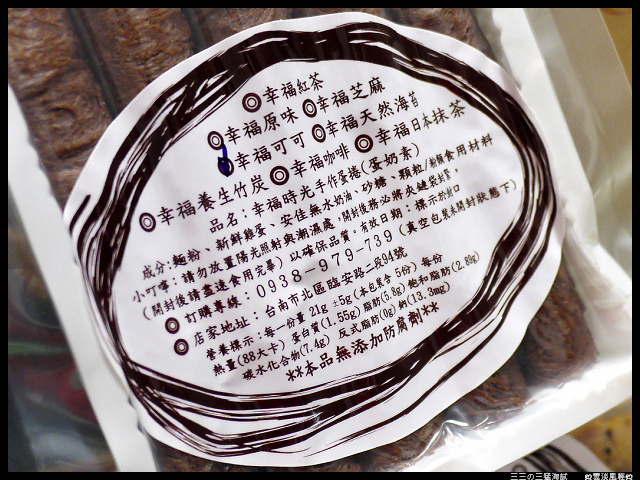 ◎幸福紅茶
◎幸福原味 ◎幸福芝麻
◎幸福可可 ◎幸福天然海苔
◎幸福養生竹炭 ◎幸福咖啡 ◎幸福日本抹茶
品名：幸福時光手作蛋捲(蛋奶素)
成分:麵粉、新鮮雞蛋、安佳無水奶油、砂糖、顆粒/粉類食用材料
小叮嚀：請勿放置陽光照射與潮濕處，開封後務必將夾鏈袋封緊，
(開封後請盡速食用完畢) 以確保品質。有效日期：標示於封口
◎訂購專線：0938-979-739 (真空包裝未開封狀態下)
◎店家地址：台南市北區臨安路二段94號
營養標示：每一份量21g ±5g(本包裝含5份) 每份
熱量(88大卡) 蛋白質(1.55g) 脂肪(5.8g) 飽和脂肪(2.89g)
碳水化合物(7.4g) 反式脂肪(0g) 鈉(13.3mg)
**本品無添加防腐劑**
三三の三猛海賊 @雲淡風輕@